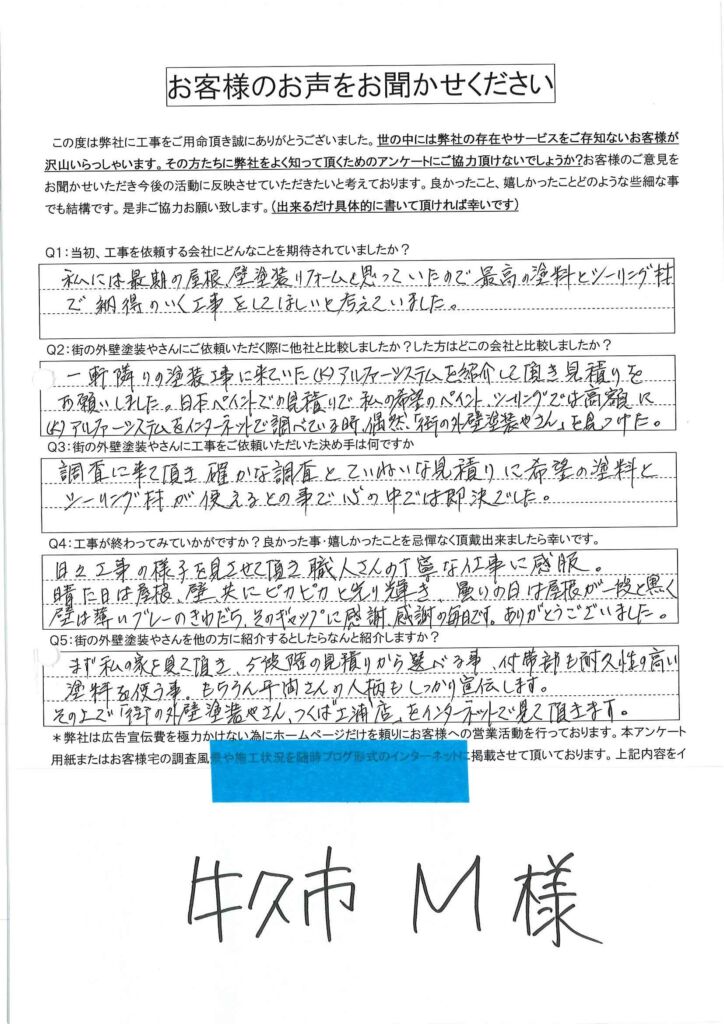 お客様のお声をお聞かせください
この度は弊社に工事をご用命頂き誠にありがとうございました。世の中には弊社の存在やサービスをご存知ないお客様が
沢山いらっしゃいます。その方たちに弊社をよく知って頂くためのアンケートにご協力頂けないでしょうか?お客様のご意見を
お聞かせいただき今後の活動に反映させていただきたいと考えております。良かったこと、嬉しかったことどのような些細な事
でも結構です。是非ご協力お願い致します。(出来るだけ具体的に書いて頂ければ幸いです)
Q1:当初、工事を依頼する会社にどんなことを期待されていましたか?
私には最期の屋根、壁塗装リフォームと思っていたので最高の塗料とシーリング材
で納得のいく工事をしてほしいと考えていました。
Q2:街の外壁塗装やさんにご依頼いただく際に他社と比較しましたか?した方はどこの会社と比較しましたか?
一軒隣りの塗装工事に来ていた(株)アルファーシステムを紹介して頂き見積りを
お願いしました。日本ペイントでの見積りで私の希望のペイント、シーリングでは高額に
(株)アルファーシステムをインターネットで調べている時、偶然、「街の外壁塗装やさん」を見つけた。
Q3:街の外壁塗装やさんに工事をご依頼いただいた決め手は何ですか
調査に来て頂き確かな調査とていねいな見積りに希望の塗料と
シーリング材が使えるとの事で心の中では即決でした。
Q4:工事が終わってみていかがですか?良かった事・嬉しかったことを忌憚なく頂戴出来ましたら幸いです。
日々工事の様子を見させて頂き職人さんの丁寧な仕事に感服。
晴た日は屋根、壁、共にピカピカと光り輝き、曇りの日は屋根が一段と黒く
壁は薄いブレーのきわだち、そのギャップに感謝、感謝の毎日です。ありがとうございました。
Q5:街の外壁塗装やさんを他の方に紹介するとしたらなんと紹介しますか?
まず私の家を見て頂き、5段階の見積りから選べる事、付帯部も耐久性の高い
塗料を使う事。もちろん平岡さんの人柄もしっかり宣伝します。
その上で「街の外壁塗装やさん、つくば土浦店」をインターネットで見て頂きます。
*弊社は広告宣伝費を極力かけない為にホームページだけを頼りにお客様への営業活動を行っております。本アンケート
用紙またはお客様宅の調査風景や施工状況を随時ブログ形式のインターネットに掲載させて頂いております。上記内容をイ
牛久市 M様